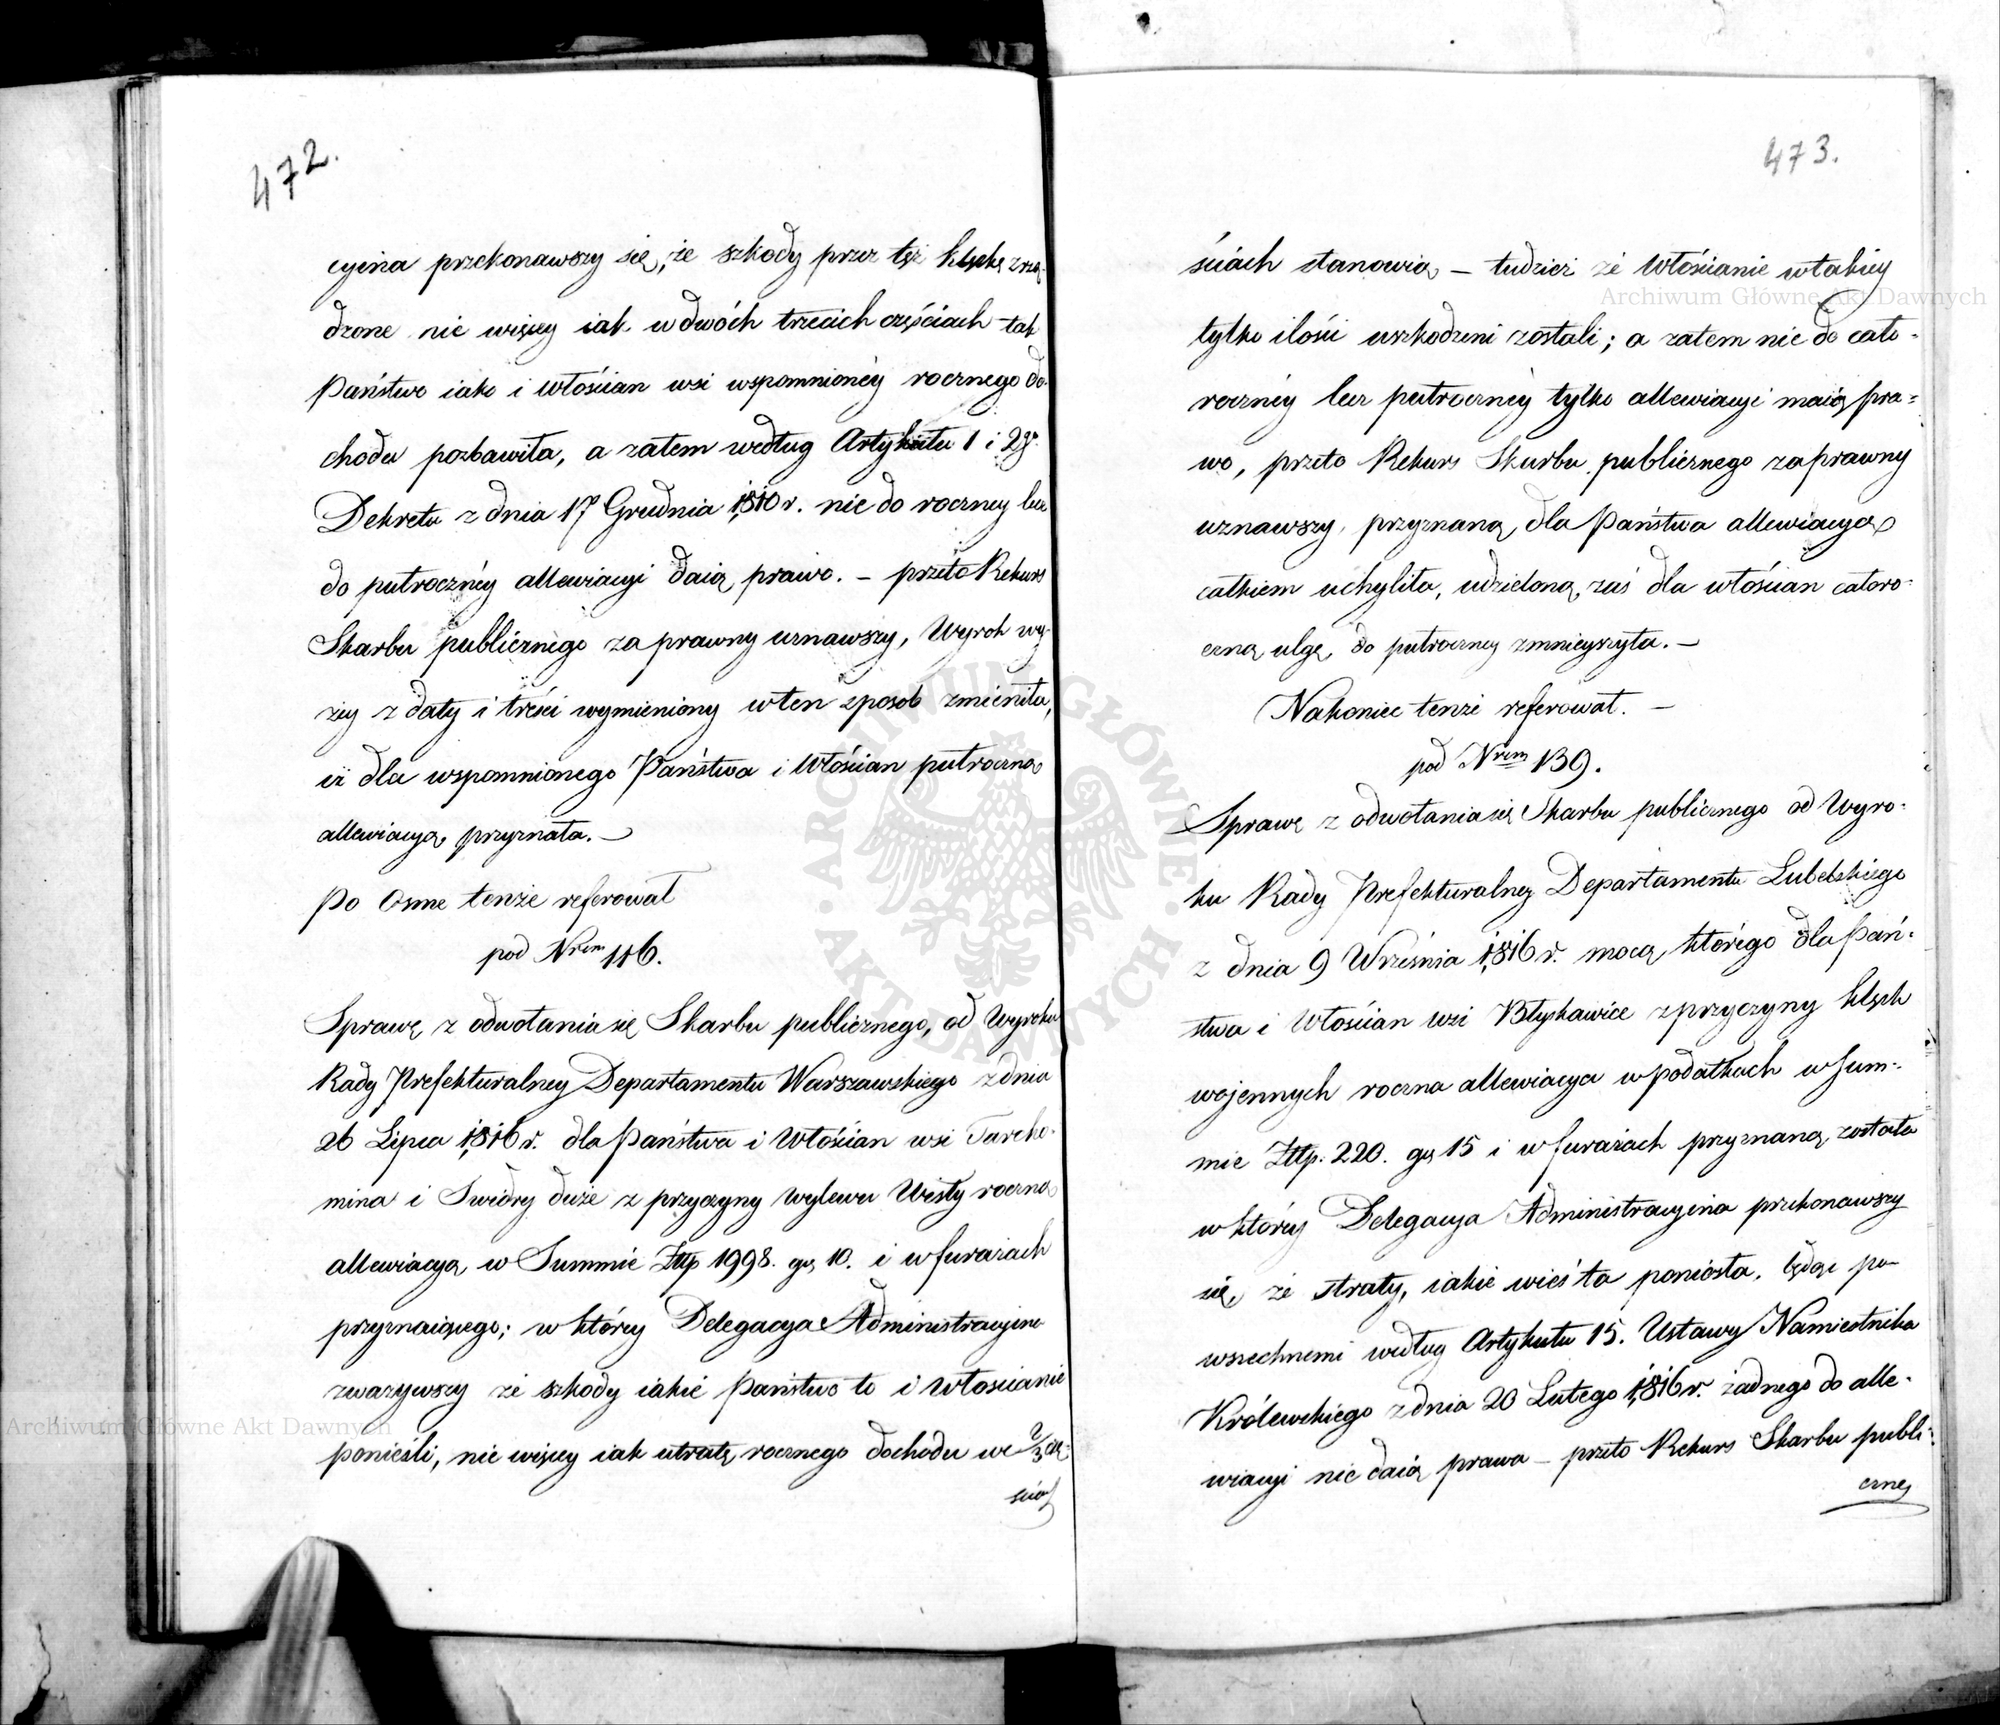 472.
cyina przekonawszy się, że szkody przez tęż klęskę zrzą-
dzone nie więcey iak w dwóch trzecich częściach tak
Państwo iako i włościan wsi wspomnionéy rocznego do-
chodu pozbawiła, a zatem według Artykułu 1 i 2go
Dekretu z dnia 17 Grudnia 1810 r. nie do roczney lecz
do półrocznéy allewiacyi daią prawo. – przeto Rekurs
Skarbu publicznego za prawny uznawszy, Wyrok wy-
żey z daty i treści wymieniony w ten sposob zmieniła,
iż dla wspomnionego Państwa i Włościan półroczną
allewiacyą przyznała. –
Po Osme tenże referował
pod Nrem 116.
Sprawę z odwołania się Skarbu publicznego, od Wyroku
Rady Prefekturalney Departamentu Warszawskiego z dnia
26 Lipca 1816 r. dla Państwa i Włościan wsi Tarcho-
mina i Swidry duże z przyczyny wylewu Wisły roczną
allewiacyą w Summie Złtp 1998. gr 10. i w furażach
przyznaiącego; w którey Delegacya Administracyina
zważywszy że szkody iakie Państwo to i Włościanie
ponieśli, nie więcey iak utratę rocznego dochodu we 2/3 czę-
ściach
473.
ściach stanowią – tudzież że Włościanie w takiey
tylko ilości uszkodzeni zostali; a zatem nie do cało-
rocznéy lecz półrocznéy tylko allewiacyi maią pra-
wo, przeto Rekurs Skarbu publicznego za prawny
uznawszy, przyznaną dla Państwa allewiacyą
całkiem uchyliła, udzieloną zaś dla włościan całoro-
czną ulgę do półroczney zmnieyszyła. –
Nakoniec tenże referował. –
pod Nrem 139.
Sprawę z odwołania się Skarbu publicznego od Wyro-
ku Rady Prefekturalney Departamentu Lubelskiego
z dnia 9 Września 1816 r. mocą którego dla Pań-
stwa i Włościan wsi Błyskawice z przyczyny klęsk
wojennych roczna allewiacya w podatkach w Sum-
mie Złtp. 220. gr 15 i w furażach przyznaną została
w którey Delegacya Administracyina przekonawszy
się, że straty, iakie wieś ta poniosła, będąc po-
wszechnemi według Artykułu 15. Ustawy Namiestnika
Królewskiego z dnia 20 Lutego 1816 r. żadnego do alle-
wiacyi nie daią prawa – przeto Rekurs Skarbu publi-
czneg